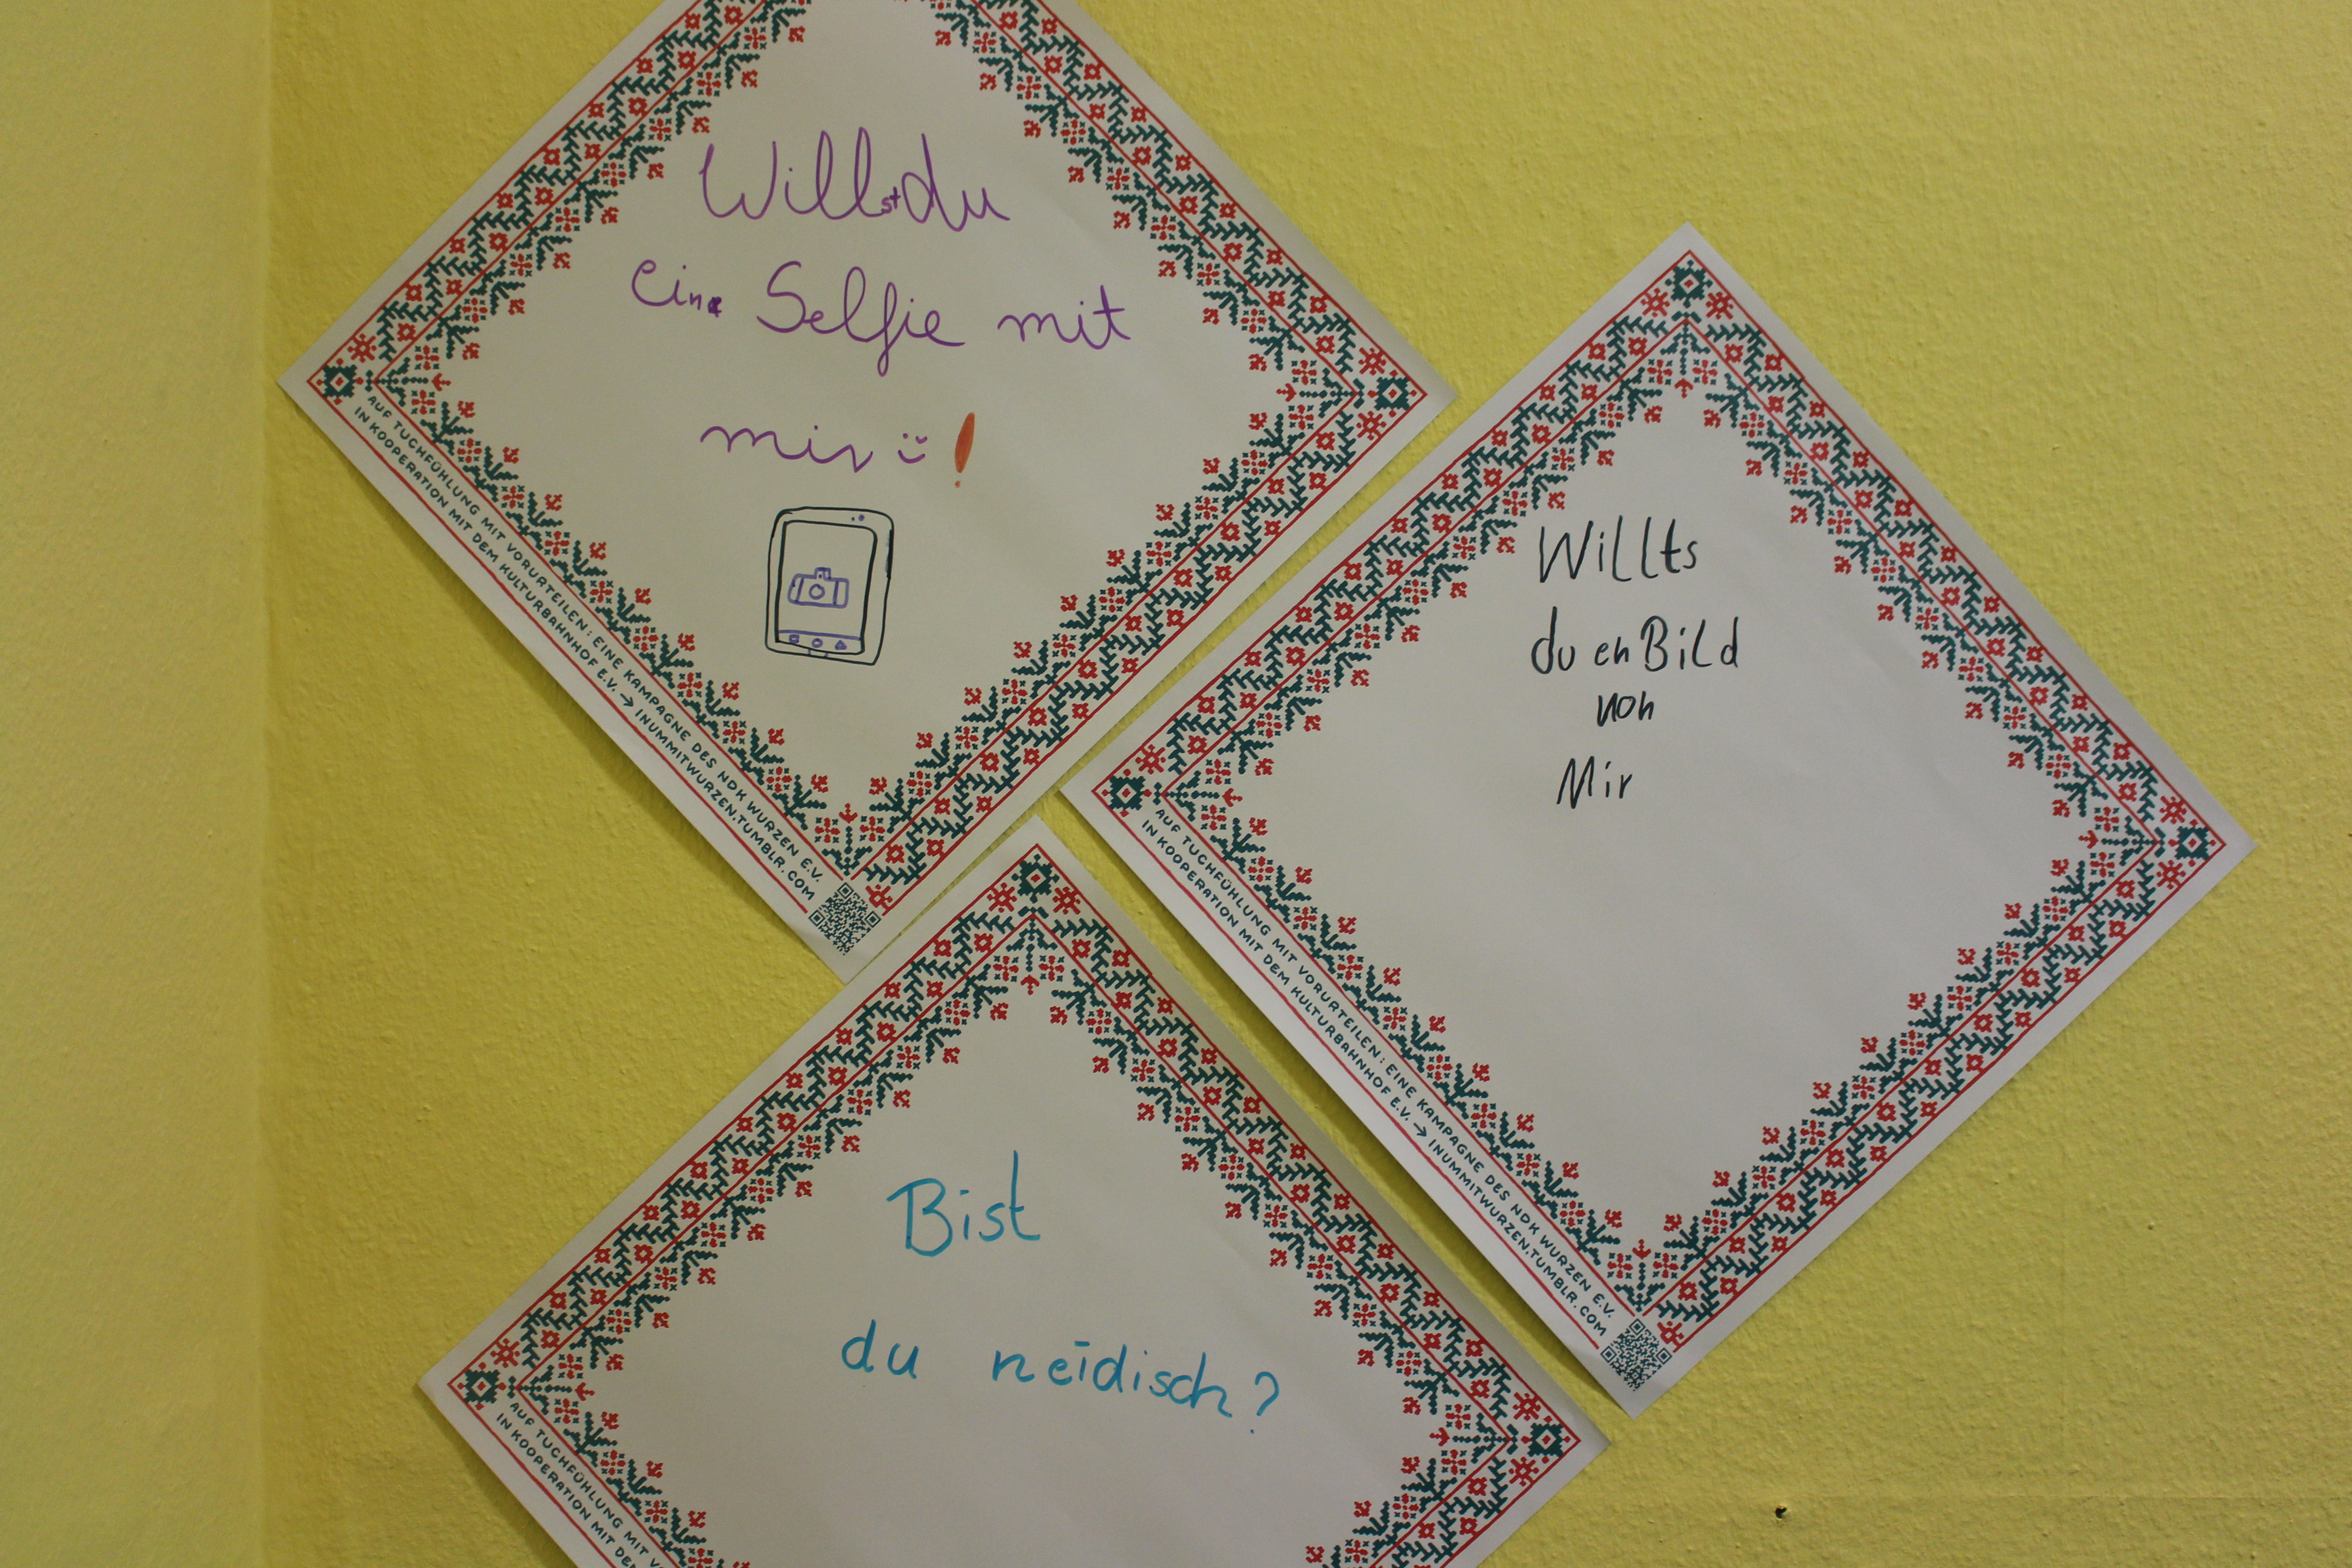 Willst du
eine Selfie mit
mir :) !
AUF TUCHFÜHLUNG MIT VORURTEILEN: EINE KAMPAGNE DES NDK WURZEN E.V.
IN KOOPERATION MIT DEM KULTURBAHNHOF E.V. → INUMMITWURZEN.TUMBLR.COM
Willts
du en Bild
von
Mir
AUF TUCHFÜHLUNG MIT VORURTEILEN: EINE KAMPAGNE DES NDK WURZEN E.V.
IN KOOPERATION MIT DEM KULTURBAHNHOF E.V. → INUMMITWURZEN.TUMBLR.COM
Bist
du neidisch?
AUF TUCHFÜHLUNG MIT
IN KOOPERATION MIT DEM